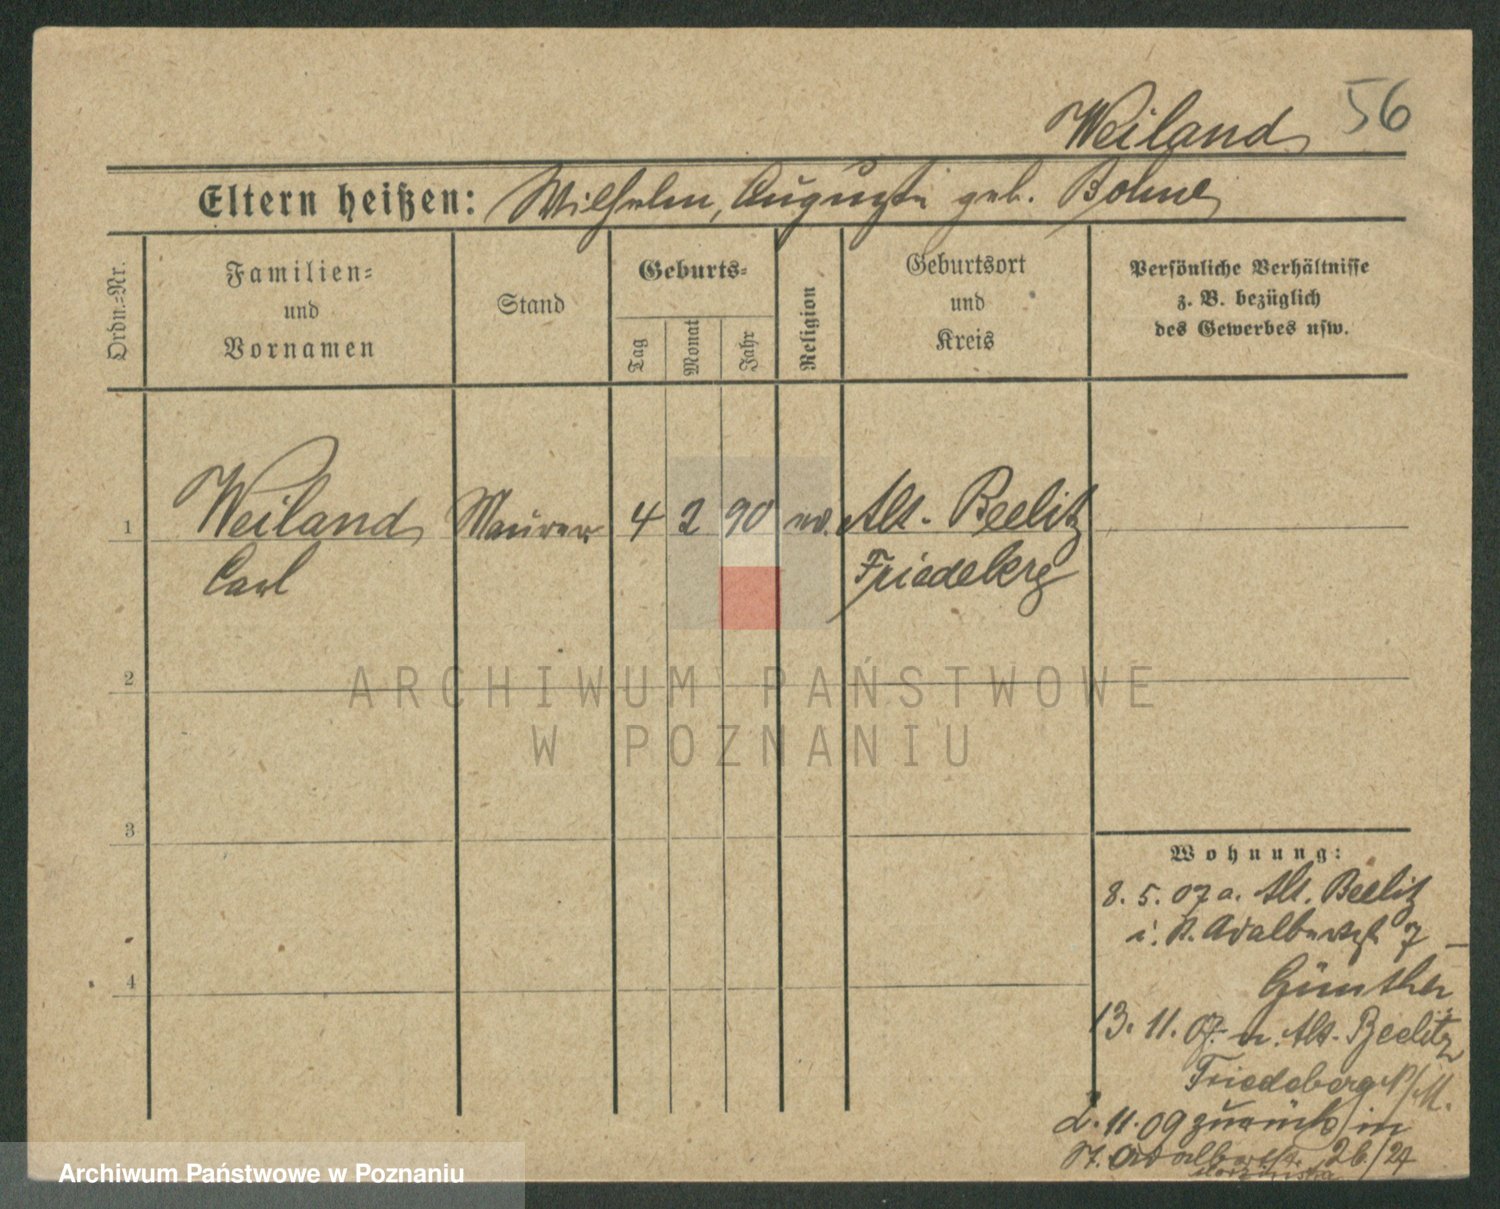 Weiland 56
Eltern heißen: Wilhelm, Auguste geb. Bohne
Ordn.-Nr.
Familien-
und
Vornamen
Stand
Geburts-
Tag
Monat
Jahr
Religion
Geburtsort
und
Kreis
Persönliche Verhältnisse
z. B. bezüglich
des Gewerbes usw.
1 Weiland Maurer 4 2 90 ev. Alt-Beelitz
Carl Friedeberg
2
3
4
Wohnung:
8. 5. 07 a. Alt. Beelitz
i. St. Adalbertst 7 –
Günther
13. 11. 07. n. Alt-Beelitz
Friedeberg N/M.
2. 11. 09 zurück in
St. Adalbertstr. 26/27
ARCHIWUM PAŃSTWOWE
W POZNANIU
Archiwum Państwowe w Poznaniu